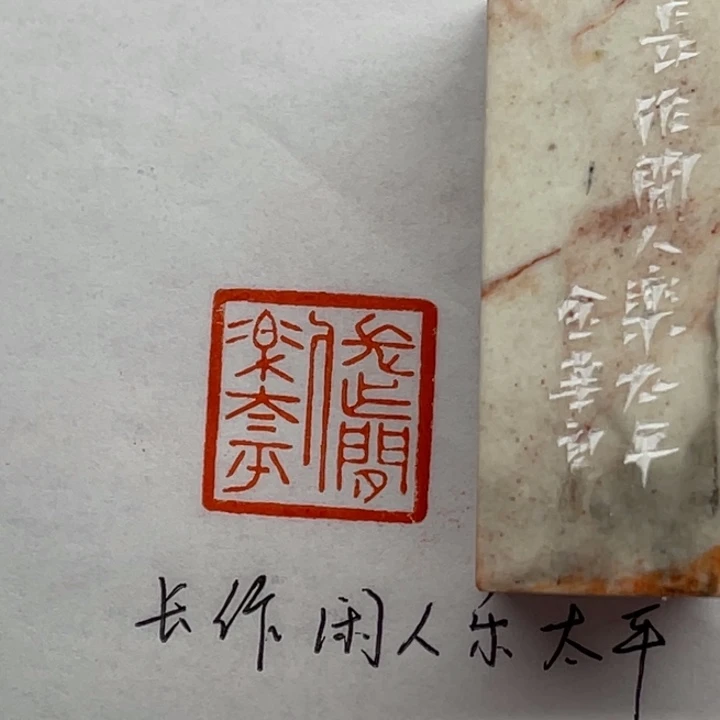 長作閒人樂太平
金華
長乍閒
人
樂太平
长作闲人乐太平